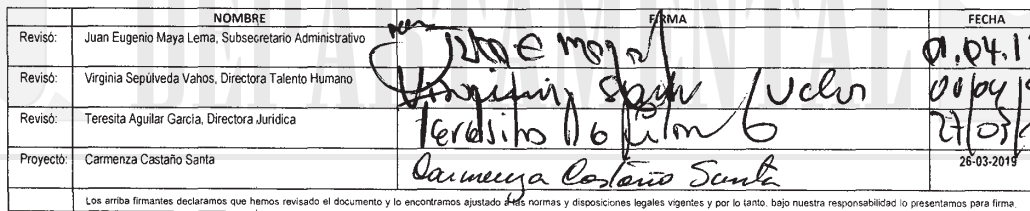 NOMBRE FIRMA FECHA
Revisó: Juan Eugenio Maya Lema, Subsecretario Administrativo 01.04.1
Revisó: Virginia Sepúlveda Vahos, Directora Talento Humano Virginia
Revisó: Teresita Aguilar García, Directora Jurídica Teresita 27/03/
Proyectó: Carmenza Castaño Santa Carmenza Castaño Santa 26-03-2019
Los arriba firmantes declaramos que hemos revisado el documento y lo encontramos ajustado a las normas y disposiciones legales vigentes y por lo tanto, bajo nuestra responsabilidad lo presentamos para firma.
DEPARTAMENTAL